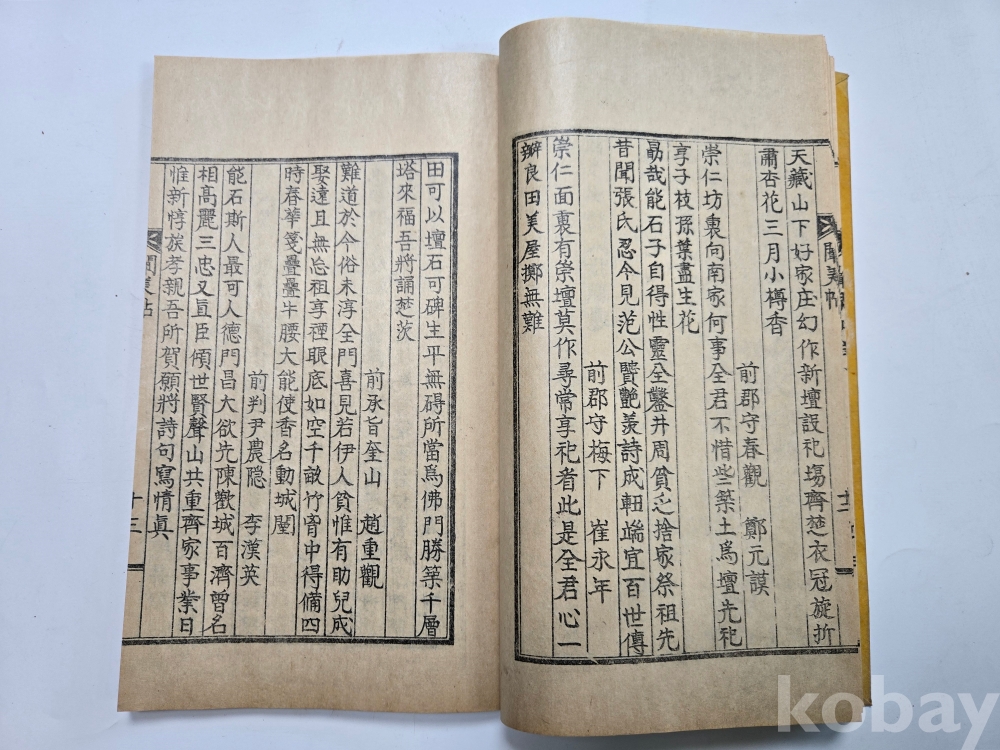 天藏山下好家庄幻作新壇設祀場齊楚衣冠旋折
肅杏花三月小樽香
前郡守春觀 鄭元謨
崇仁坊裏向南家何事全君不惜些築土爲壇先祀
享子枝孫葉盡生花
勗哉能石子自得性靈全鑿井周貧乏捨家祭祖先
昔聞張氏忍今見范公賢艶羨詩成軒端宜百世傳
前郡守梅下 崔永年
崇仁面裏有崇壇莫作尋常享祀者此是全君心一
瓣良田美屋擲無難
田可以壇石可碑生平無碍所當爲佛門勝築千層
塔來福吾將誦楚茨
前承旨奎山 趙重觀
難道於今俗未淳全門喜見若伊人貧惟有助兒成
娶遠且無忘祖享禋眼底如空千畝竹胷中得備四
時春華箋疊疊牛腰大能使香名動城闉
前判尹農隐 李漢英
能石斯人最可人德門昌大欲先陳歡城百濟曾名
相高麗三忠又直臣傾世賢聲山共重齊家事業日
惟新惇族孝親吾所賀願將詩句寫情眞
十三
kobay